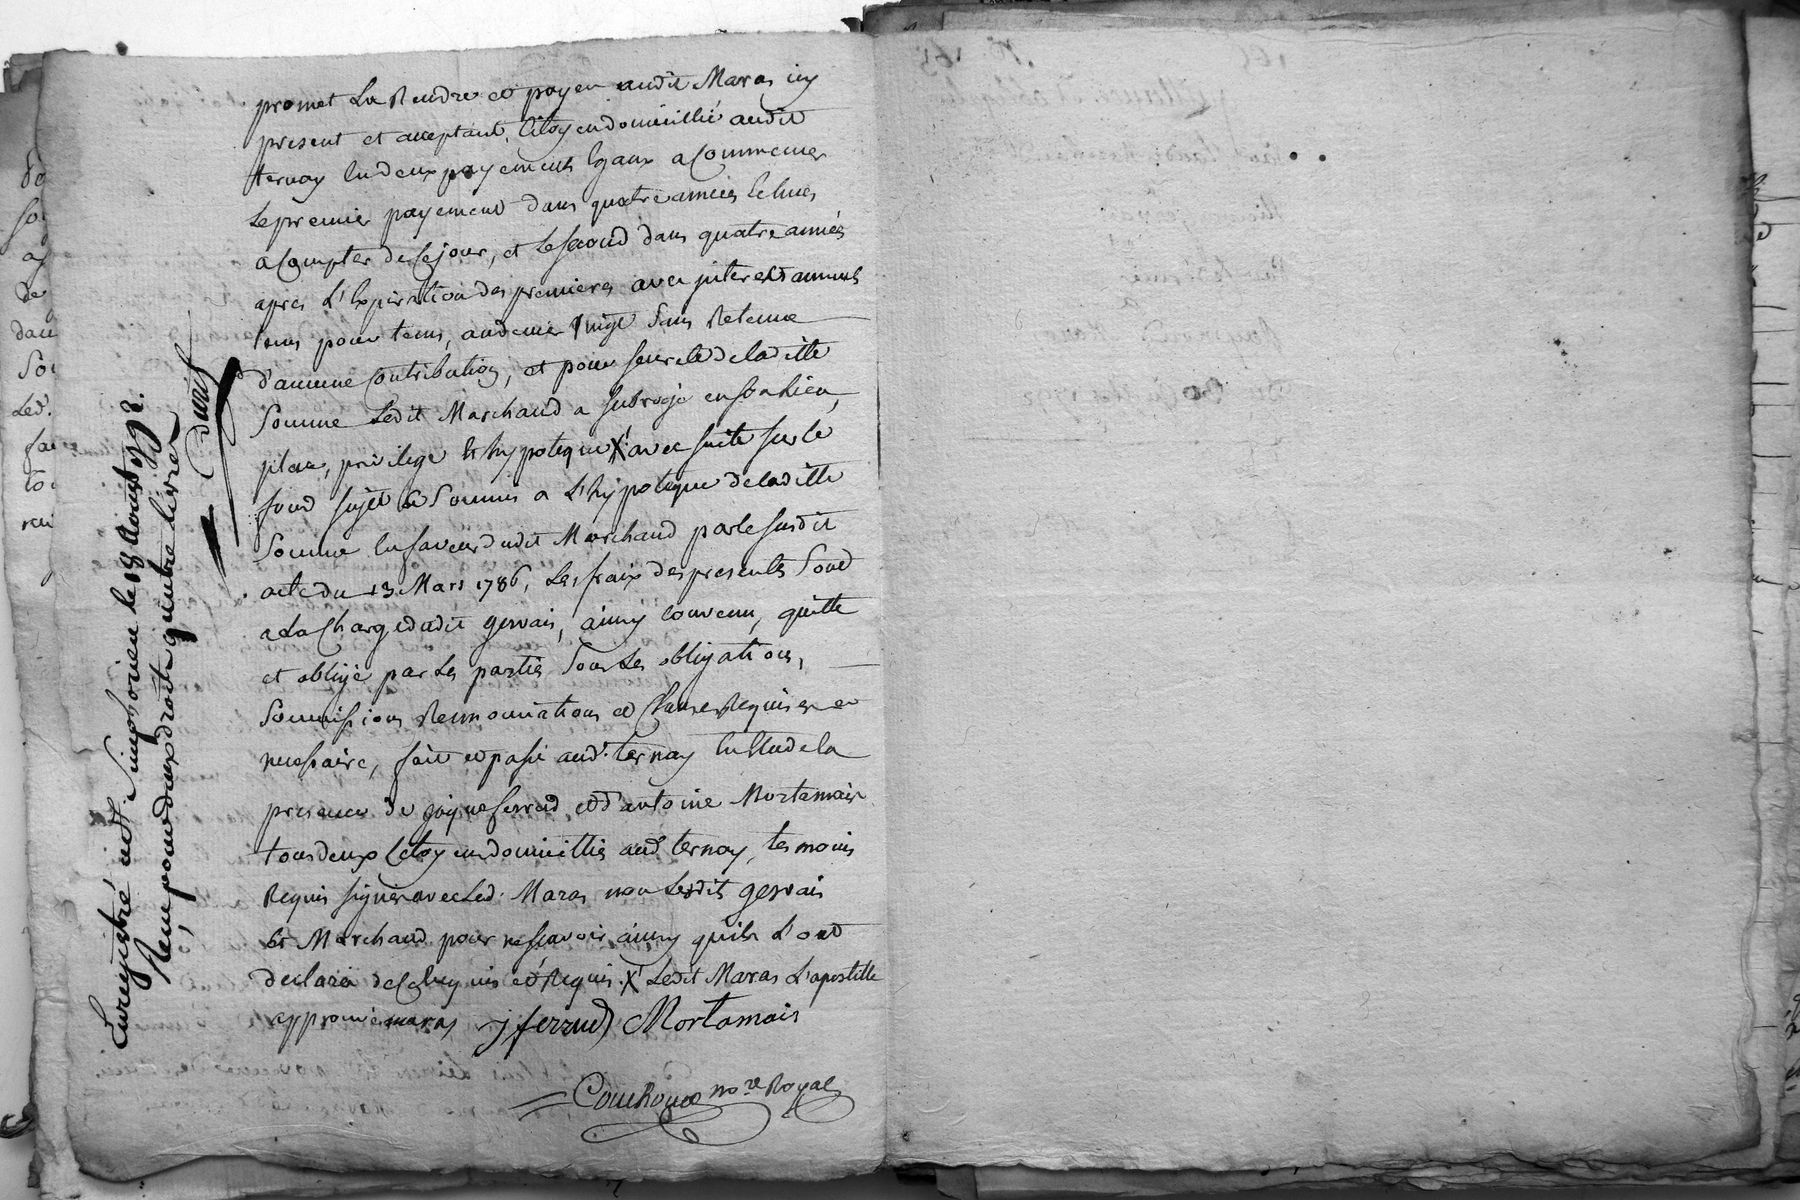 promet La Rendre et payer audit Maras icy
present et acceptant, Citoyen domicillié audit
ternay En deux payements Egaux a Commencer
Le premier payement dans quatre années Echues
a Compter de Ce jour, et Le second dans quatre années
apres L'Expiration des premieres avec jnterests annuels
pour tems, au denier vingt Sans Retenue
d'aucune Contribution, et pour seureté de laditte
Somme Ledit Marchand a subrogé en son Lieu,
place, privilege et hypoteque X avec suite sur le
fond sujet et Soumis a L'hypoteque de laditte
Somme En faveur dudit Marchand par le susdit
acte du 13 Mars 1786, Les fraix des presentes Sont
a La Charge dudit gervais, ainsy convenu, quitté
et obligé par Les parties Sous Les obligations,
Soumissions Renonciations et Clauses Requises et
necessaire, fait et passé aud. ternay En Etude En la
presence de ferrud et d'antoine Mortamais
tous deux Citoyens domicilliés aud ternay, temoins
Requis signés avec Led. Maras non Lesdits gervais
et Marchand pour ne sçavoir ainsy quils L'ont
declaré de Ce Enquis et Requis. X Ledit Maras L'apostille
approuvé maras j ferrud Mortamais
Couchoud no.re Royal
Enregistré a St. Simphorien le 18 Aoust 1792.
Reçu pour deux droits quatre livres